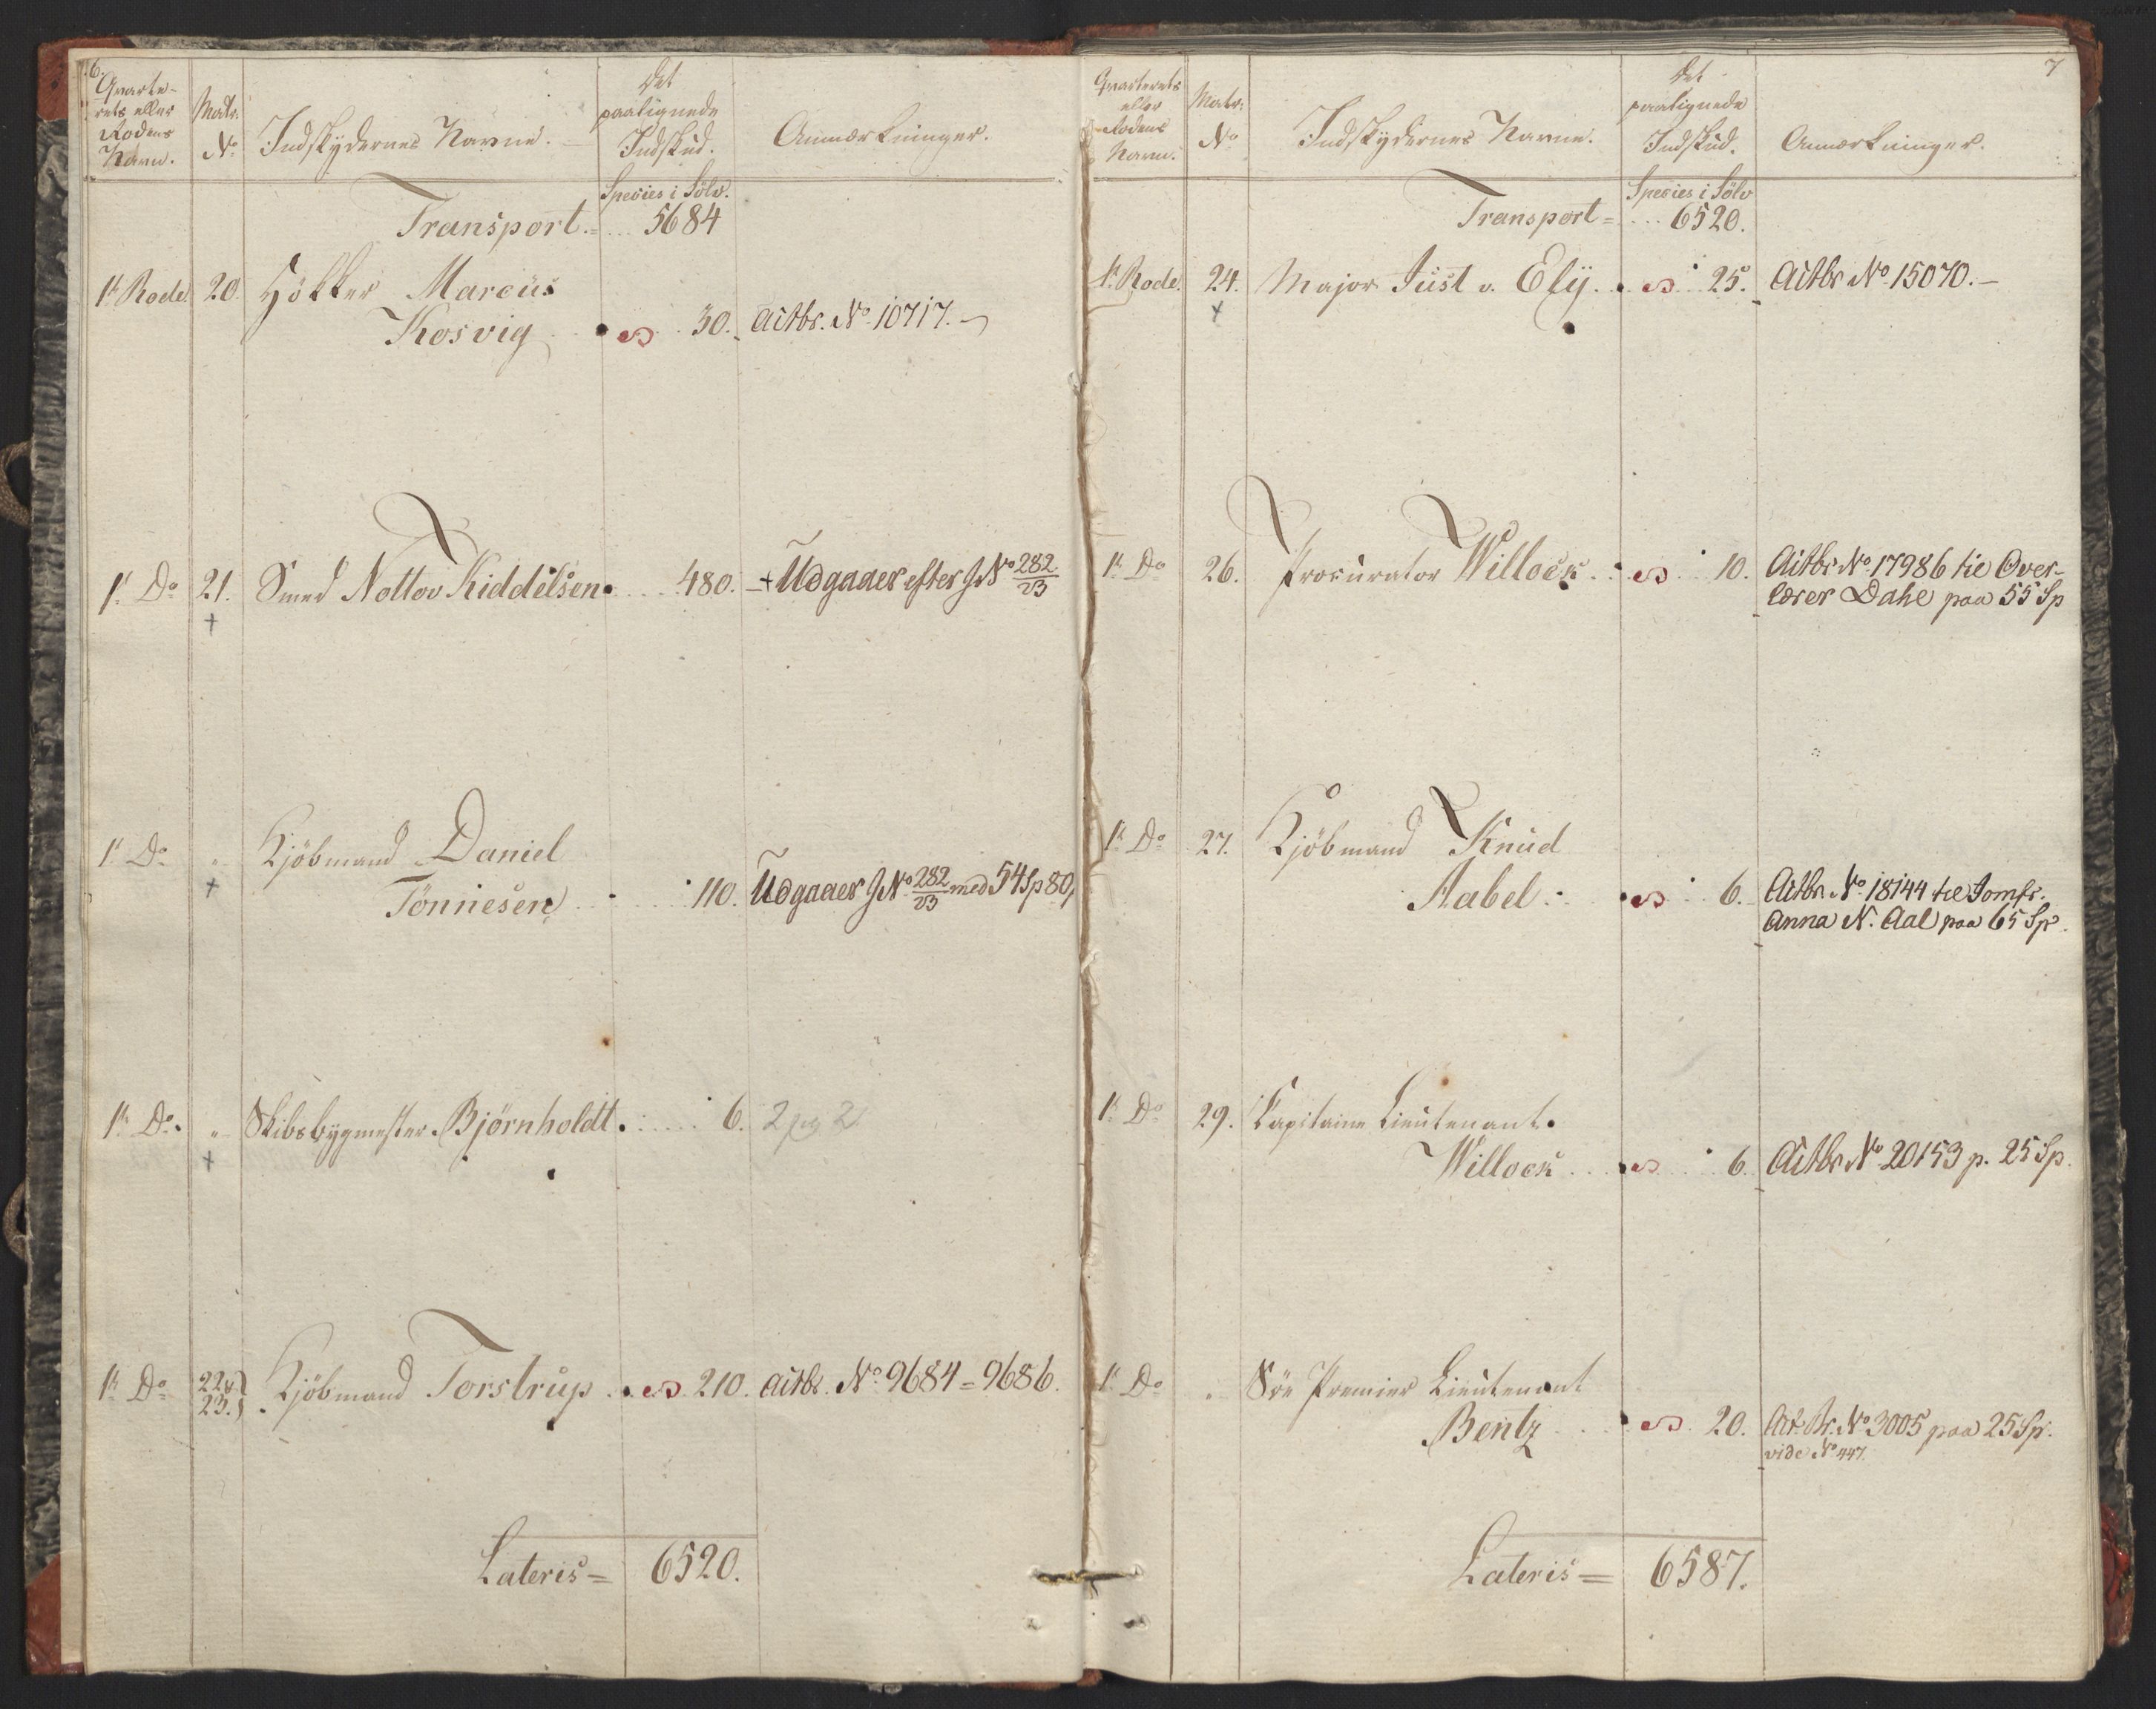 6.
Qvarte-
rets eller
Rodens
Navn.
Matr.
No
Indskydernes Navne.
Det
paalignede
Indskud.
Anmærkninger.
Species i Sölv.
Transport = 5684
1ste Rode. 20. Hökker Marcus
Kosvig 30. Actbr. No 10717.
1ste Do 21. Smed Nottov Kiddelsen. 480. Udgaaer efter J No 282/23
+
1ste Do " Kjöbmand Daniel
Tönnesen 110. Udgaaer J No 282/23 med 54 Sp 80
+
1ste Do. " Skibsbygmester Björnholdt. 6. 2 pg 2
+
1ste Do 22 & 23. Kjöbmand Torstrup 210. actbr. No 9684 = 9686.
Lateris = 6520.
7
Qvarterets
eller
Rodens
Navn.
Matr:
No
Indskydernes Navne.
Det
paalignede
Indskud.
Anmærkninger.
Species i Sölv
Transport = 6520.
1ste Rode. 24. Major Just v. Ely. 25. Actbr No 15070.
+
1ste Do 26. Procurator Willock 10. Actbr No 17986 til Over-
lærer Dahl paa 55 Sp
1ste Do 27. Kjöbmand Knud
Aabel 6. Actbr. No 18144 til Jomfr.
Anna N. Aal paa 65 Sp.
1ste Do 29. Capitaine Lieutenant
Willock 6. Actbr No 20153 p. 25 Sp.
1ste Do " Söe Premier Lieutenant
Bentz 20. Act. Br. No 3005 paa 25 Sp.
vide No 447.
Lateris = 6587.